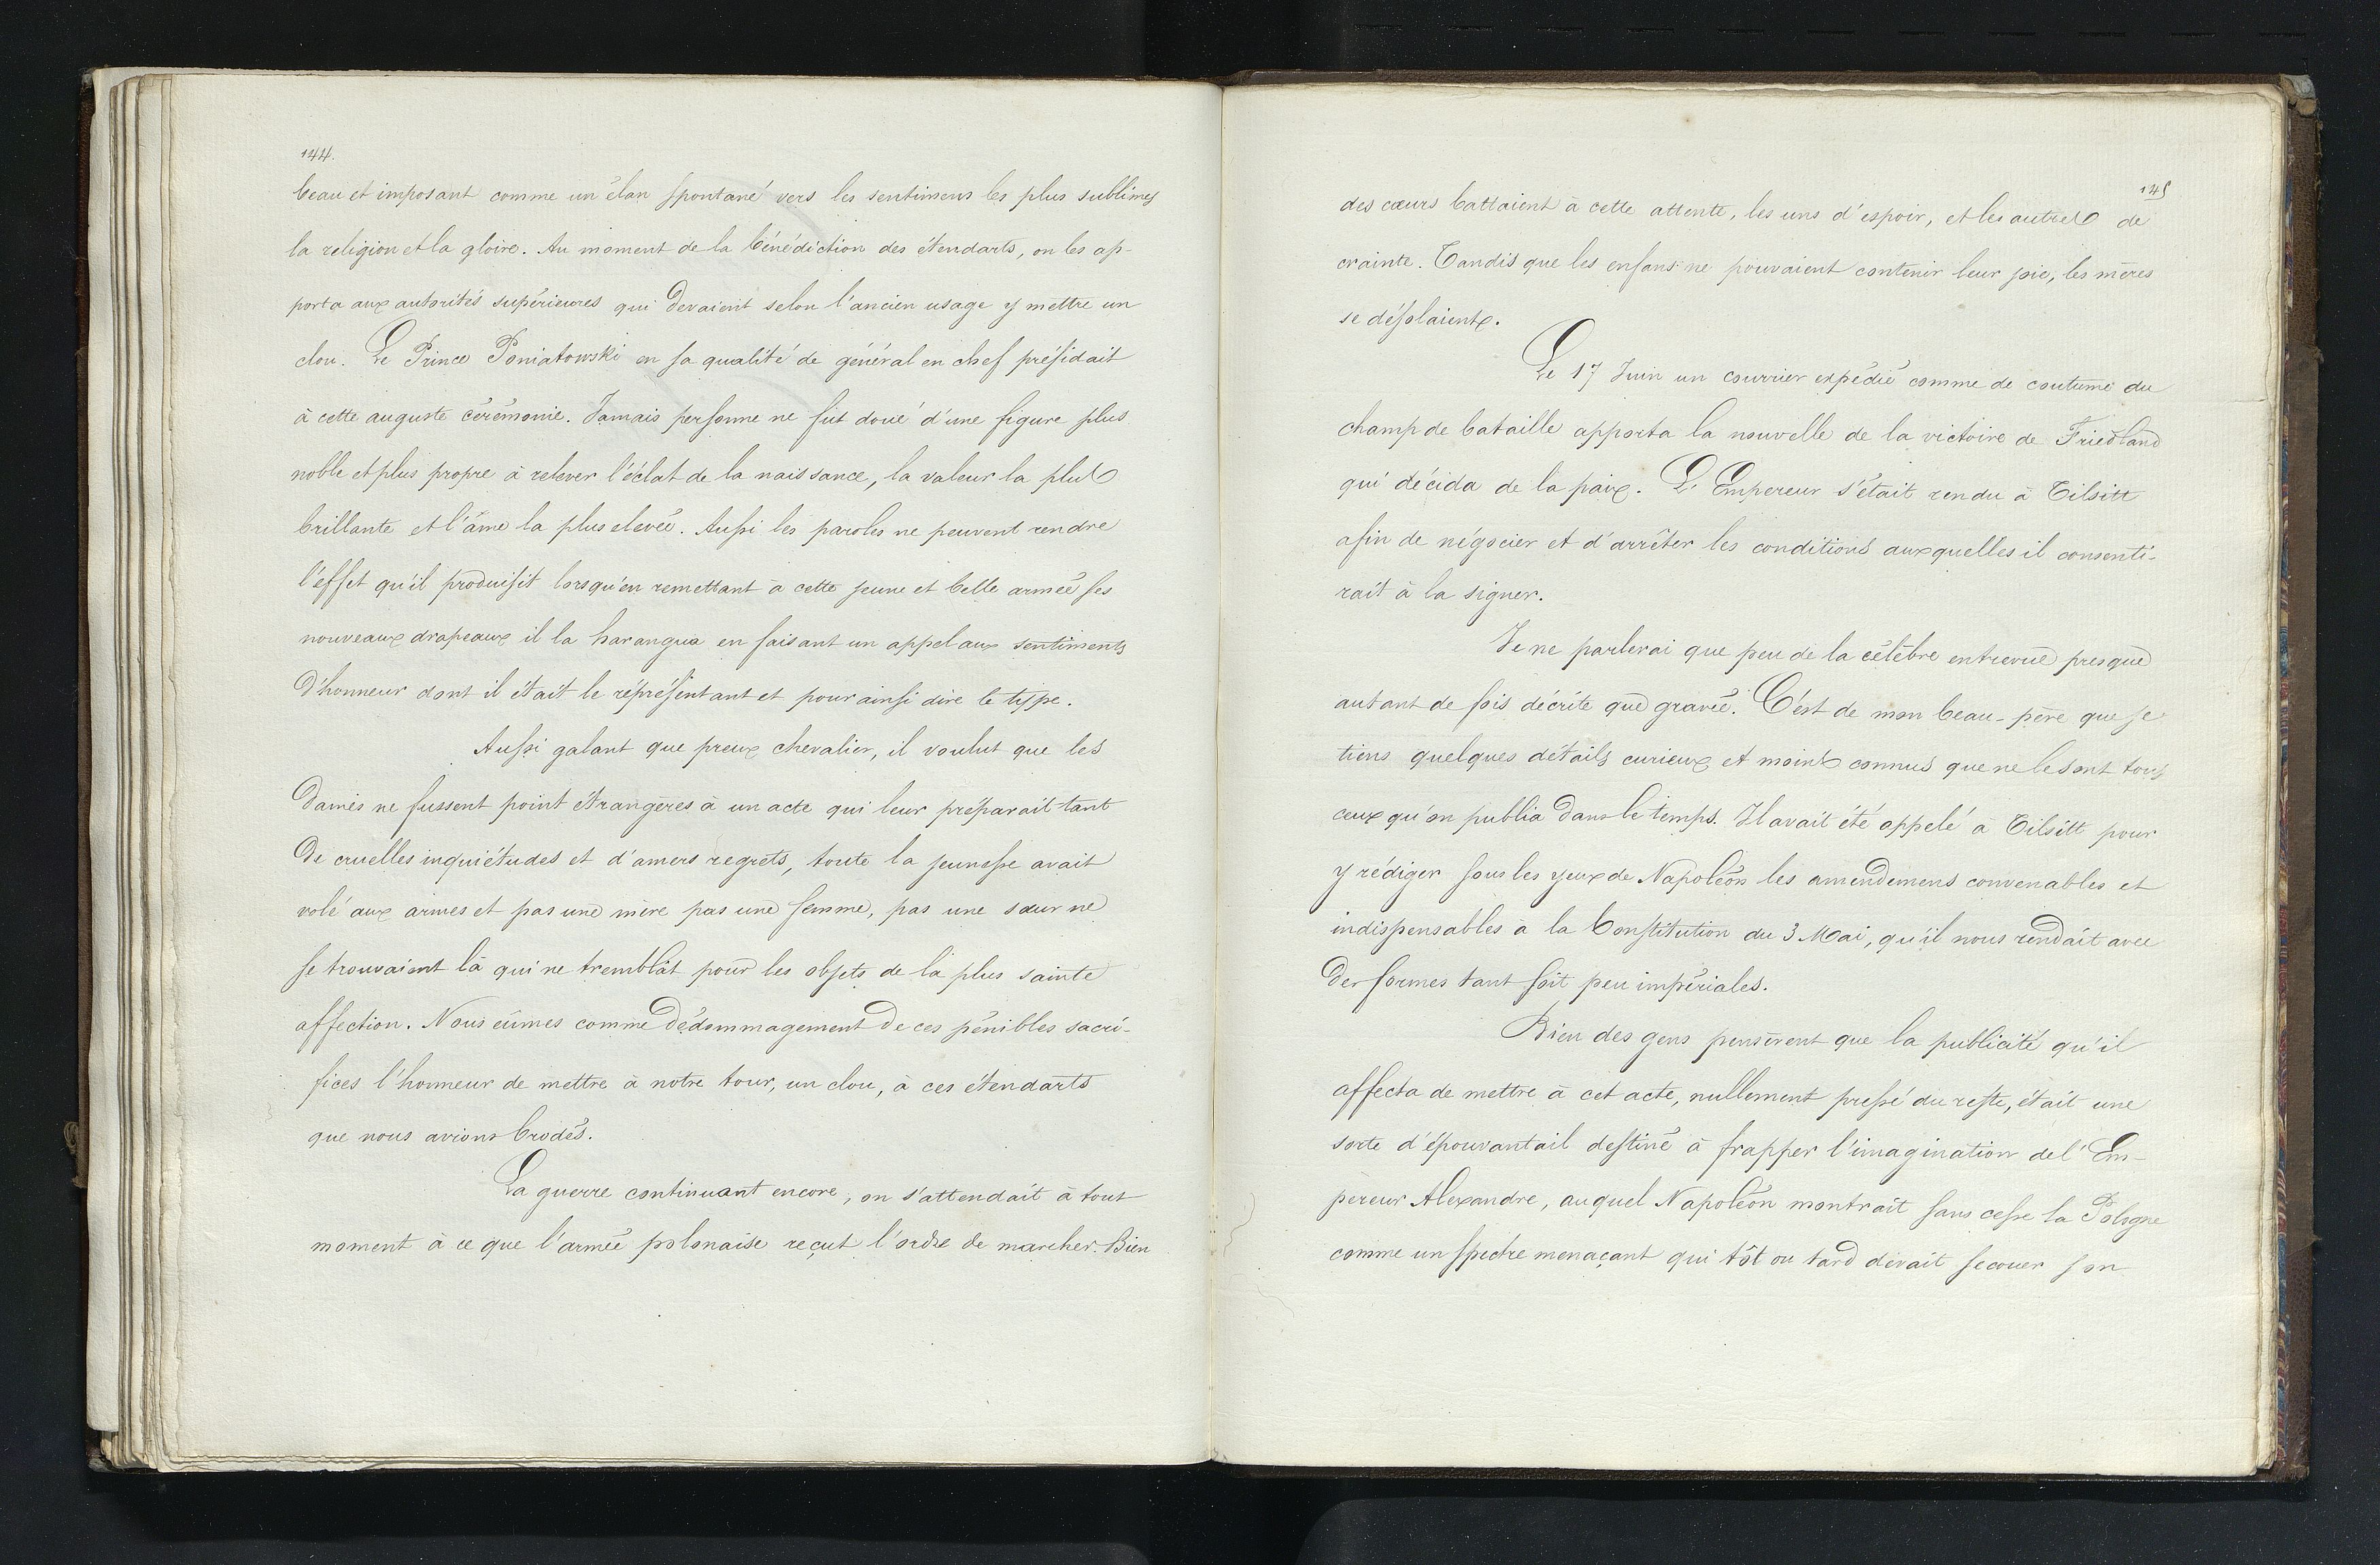 144.
beau et imposant comme un élan spontané vers les sentimens les plus sublimes
la religion et la gloire. Au moment de la bénédiction des étendarts, on les ap-
porta aux autorités supérieures qui devaient selon l'ancien usage y mettre un
clou. Le Prince Poniatowski en sa qualité de général en chef présidait
à cette auguste cérémonie. Jamais personne ne fut doué d'une figure plus
noble et plus propre à relever l'éclat de la naissance, la valeur la plus
brillante et l'âme la plus elevée. Aussi les paroles ne peuvent rendre
l'éffet qu'il produisit lorsqu'en remettant à cette jeune et belle armée ses
nouveaux drapeaux il la harangua en faisant un appel aux sentiments
d'honneur dont il était le réprésentant et pour ainsi dire le type.
Aussi galant que preux chevalier, il voulut que les
dames ne fussent point étrangères à un acte qui leur préparait tant
de cruelles inquiétudes et d'amers regrets, toute la jeunesse avait
volé aux armes et pas une mère pas une femme, pas une sœur ne
se trouvaient là qui ne tremblât pour les objets de la plus sainte
affection. Nous eûmes comme dédommagement de ces pénibles sacri-
fices l'honneur de mettre à notre tour, un clou, à ces étendarts
que nous avions brodés.
La guerre continuant encore, on s'attendait à tout
moment à ce que l'armée polonaise reçut l'ordre de marcher. Bien
145
des cœurs battaient à cette attente, les uns d'espoir, et les autres de
crainte. Tandis que les enfans ne pouvaient contenir leur joie, les mères
se désolaient.
Le 17 Juin un courrier expédié comme de coutume du
champ de bataille apporta la nouvelle de la victoire de Friedland
qui décida de la paix. L'Empereur s'était rendu à Tilsitt
afin de négocier et d'arrêter les conditions auxquelles il consenti-
rait à la signer.
Je ne parlerai que peu de la célèbre entrevue presque
autant de fois décrite que gravée. C'est de mon beau-père que je
tiens quelques détails curieux et moins connus que ne le sont tous
ceux qu'on publia dans le temps. Il avait été appelé à Tilsitt pour
y rédiger sous les yeux de Napoléon les amendemens convenables et
indispensables à la Constitution du 3 Mai, qu'il nous rendait avec
des formes tant soit peu impériales.
Bien des gens pensèrent que la publicité qu'il
affecta de mettre à cet acte, nullement pressé du reste, était une
sorte d'épouvantail destiné à frapper l'imagination de l'Em-
pereur Alexandre, auquel Napoléon montrait sans cesse la Pologne
comme un spectre menaçant qui tôt ou tard dévait secouer son